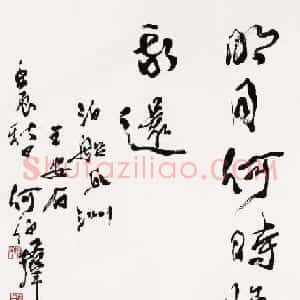 明月何時照
我還
泊船瓜洲
王安石
壬辰秋日何伯群
Shufaziliao.com